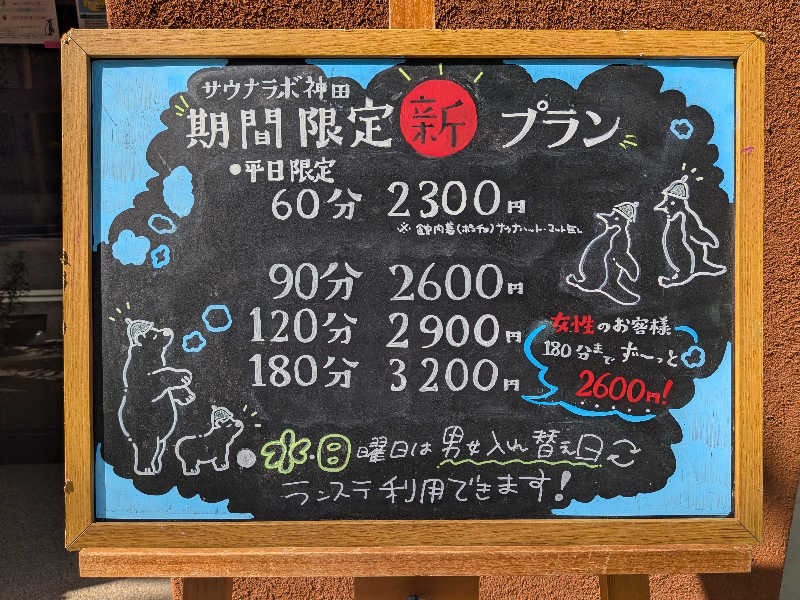 サウナラボ神田
期間限定 新 プラン
●平日限定
60分 2300円
※館内着(ポンチョ)サウナハット・マット無し
90分 2600円
120分 2900円
180分 3200円
女性のお客様
180分まで ずーっと
2600円!
●水・日曜日は男女入れ替え日
ランステ利用できます!